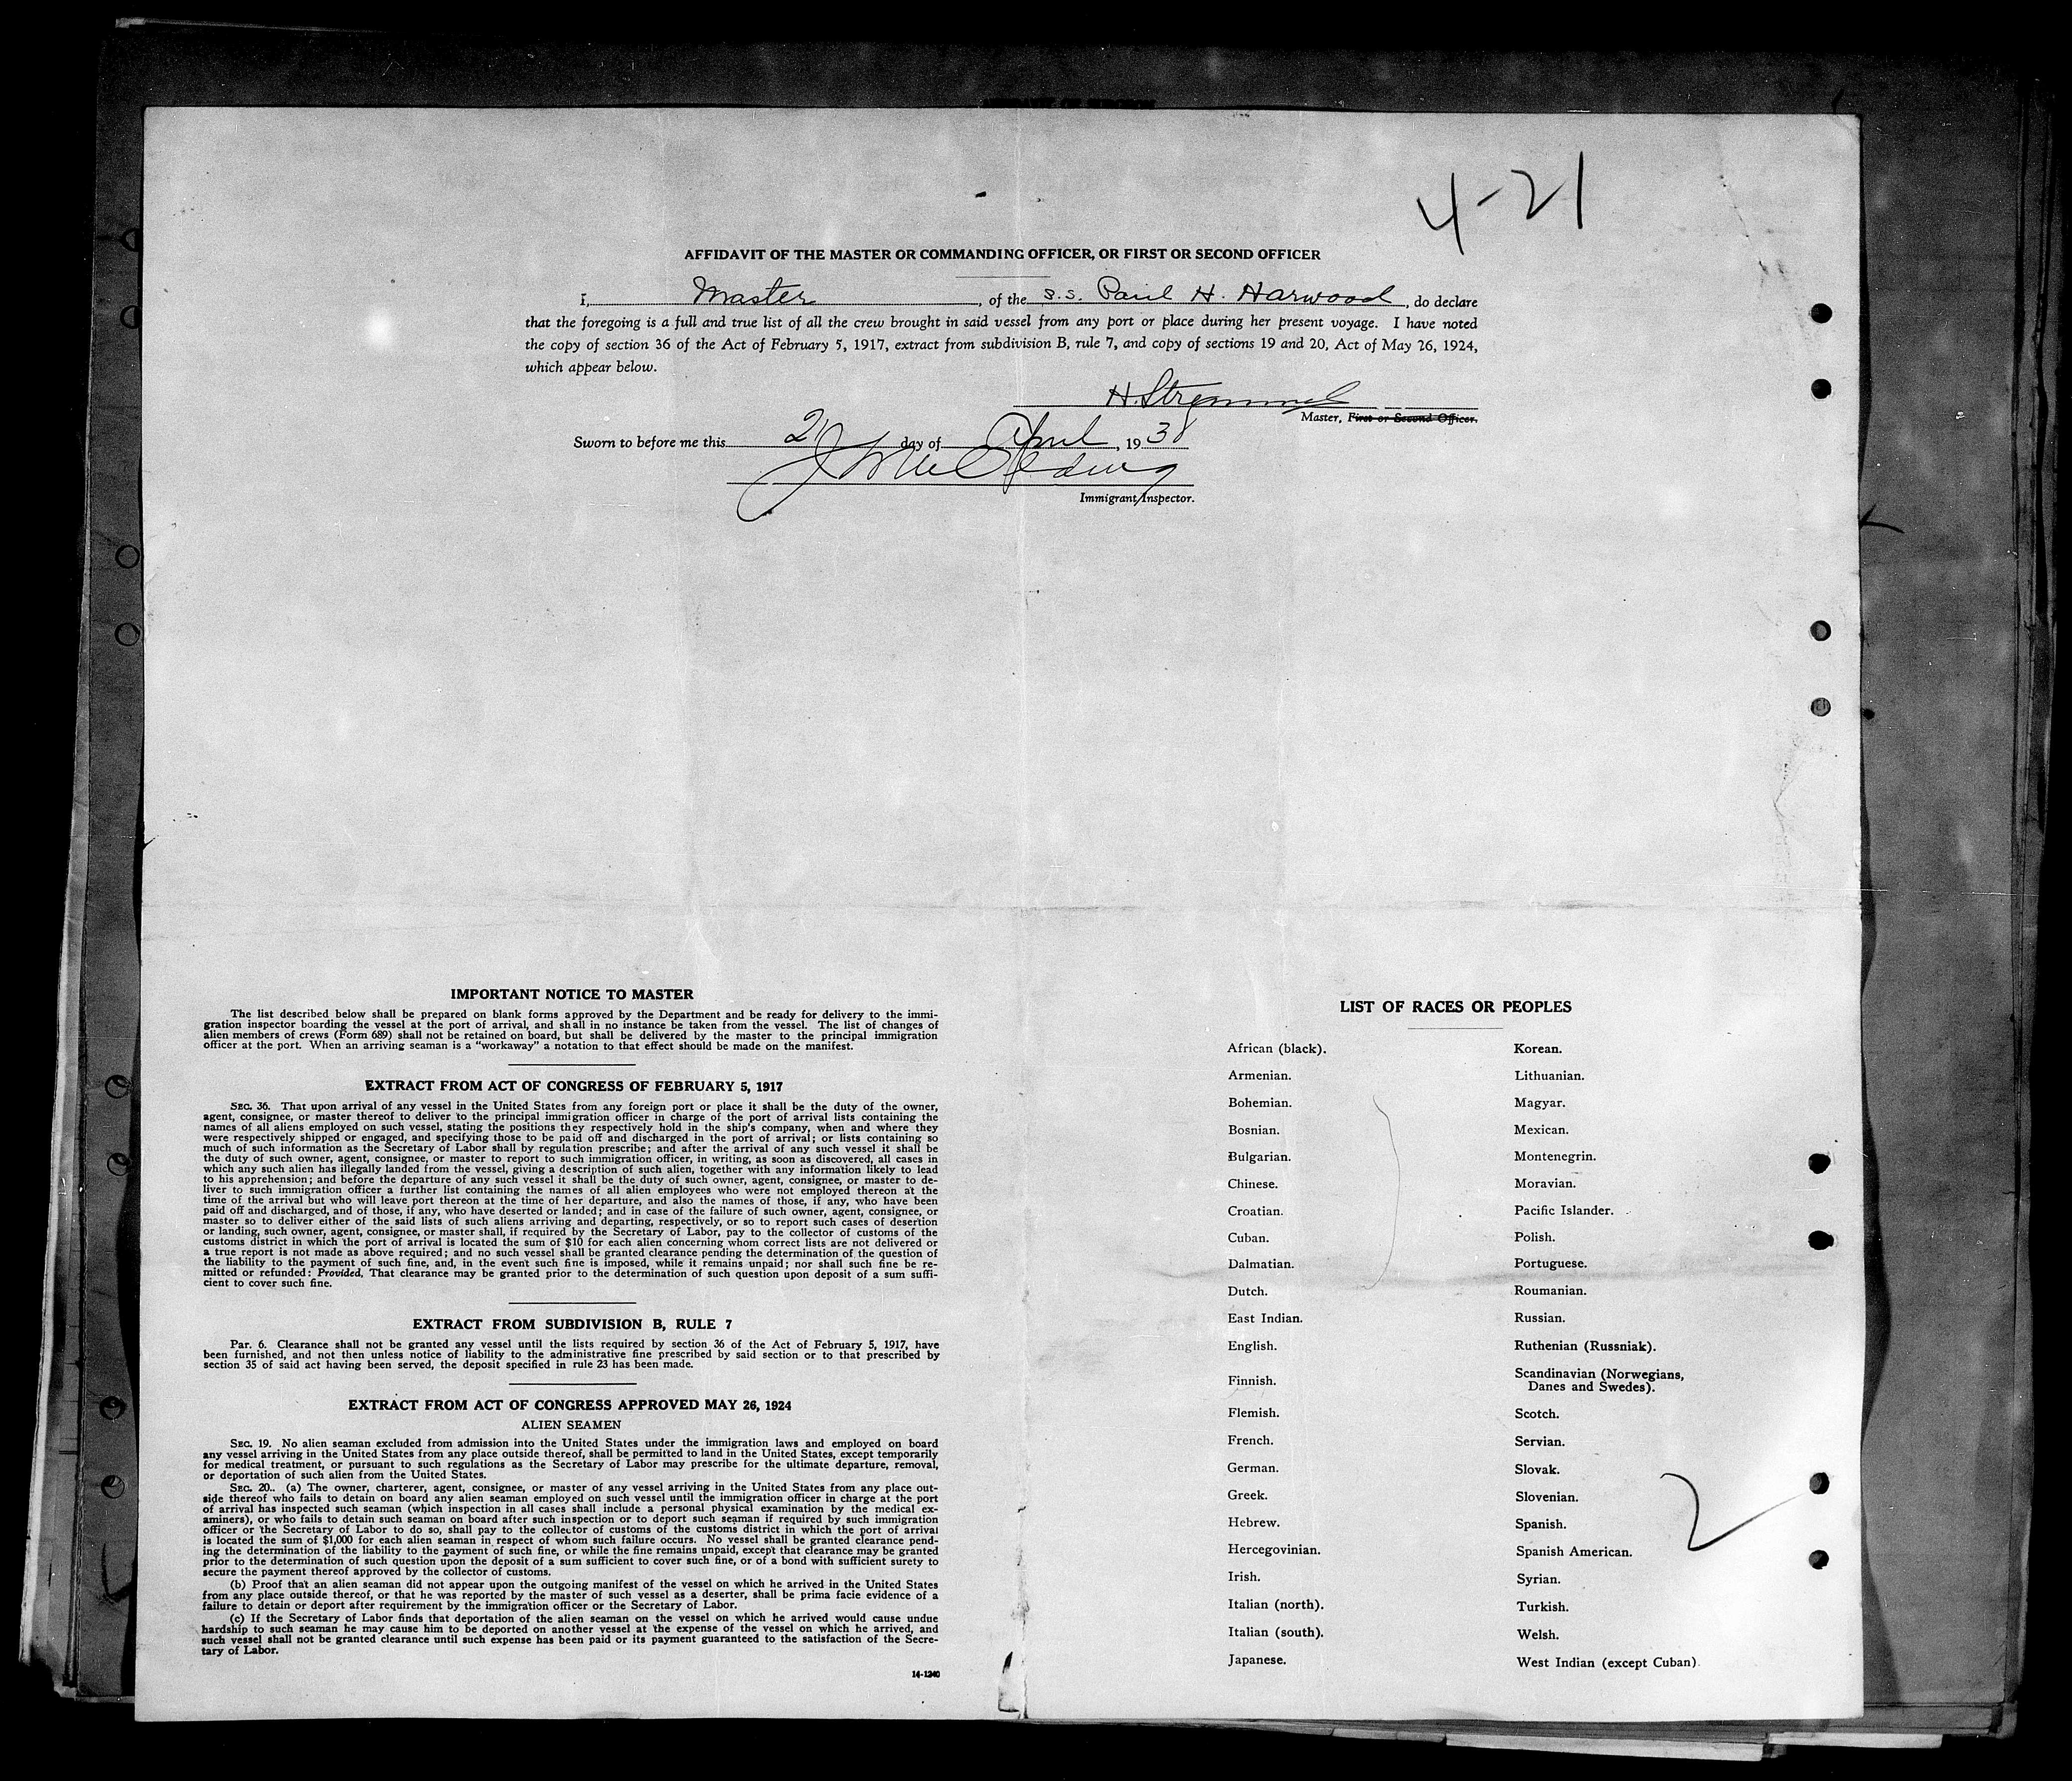 4-21
AFFIDAVIT OF THE MASTER OR COMMANDING OFFICER, OR FIRST OR SECOND OFFICER
I, Master, of the S.S. Paul H. Harwood, do declare
that the foregoing is a full and true list of all the crew brought in said vessel from any port or place during her present voyage. I have noted
the copy of section 36 of the Act of February 5, 1917, extract from subdivision B, rule 7, and copy of sections 19 and 20, Act of May 26, 1924,
which appear below.
H.
Master, First or Second Officer.
Sworn to before me this 21 day of April, 1938
Immigrant Inspector.
IMPORTANT NOTICE TO MASTER
The list described below shall be prepared on blank forms approved by the Department and be ready for delivery to the immi-
gration inspector boarding the vessel at the port of arrival, and shall in no instance be taken from the vessel. The list of changes of
alien members of crews (Form 689) shall not be retained on board, but shall be delivered by the master to the principal immigration
officer at the port. When an arriving seaman is a "workaway" a notation to that effect should be made on the manifest.
EXTRACT FROM ACT OF CONGRESS OF FEBRUARY 5, 1917
SEC. 36. That upon arrival of any vessel in the United States from any foreign port or place it shall be the duty of the owner,
agent, consignee, or master thereof to deliver to the principal immigration officer in charge of the port of arrival lists containing the
names of all aliens employed on such vessel, stating the positions they respectively hold in the ship's company, when and where they
were respectively shipped or engaged, and specifying those to be paid off and discharged in the port of arrival; or lists containing so
much of such information as the Secretary of Labor shall by regulation prescribe; and after the arrival of any such vessel it shall be
the duty of such owner, agent, consignee, or master to report to such immigration officer, in writing, as soon as discovered, all cases in
which any such alien has illegally landed from the vessel, giving a description of such alien, together with any information likely to lead
to his apprehension; and before the departure of any such vessel it shall be the duty of such owner, agent, consignee, or master to de-
liver to such immigration officer a further list containing the names of all alien employees who were not employed thereon at the
time of the arrival but who will leave port thereon at the time of her departure, and also the names of those, if any, who have been
paid off and discharged, and of those, if any, who have deserted or landed; and in case of the failure of such owner, agent, consignee, or
master so to deliver either of the said lists of such aliens arriving and departing, respectively, or so to report such cases of desertion
or landing, such owner, agent, consignee, or master shall, if required by the Secretary of Labor, pay to the collector of customs of the
customs district in which the port of arrival is located the sum of $10 for each alien concerning whom correct lists are not delivered or
a true report is not made as above required; and no such vessel shall be granted clearance pending the determination of the question of
the liability to the payment of such fine, and, in the event such fine is imposed, while it remains unpaid; nor shall such fine be re-
mitted or refunded: Provided, That clearance may be granted prior to the determination of such question upon deposit of a sum suffi-
cient to cover such fine.
EXTRACT FROM SUBDIVISION B, RULE 7
Par. 6. Clearance shall not be granted any vessel until the lists required by section 36 of the Act of February 5, 1917, have
been furnished, and not then unless notice of liability to the administrative fine prescribed by said section or to that prescribed by
section 35 of said act having been served, the deposit specified in rule 23 has been made.
EXTRACT FROM ACT OF CONGRESS APPROVED MAY 26, 1924
ALIEN SEAMEN
SEC. 19. No alien seaman excluded from admission into the United States under the immigration laws and employed on board
any vessel arriving in the United States from any place outside thereof, shall be permitted to land in the United States, except temporarily
for medical treatment, or pursuant to such regulations as the Secretary of Labor may prescribe for the ultimate departure, removal,
or deportation of such alien from the United States.
SEC. 20. (a) The owner, charterer, agent, consignee, or master of any vessel arriving in the United States from any place out-
side thereof who fails to detain on board any alien seaman employed on such vessel until the immigration officer in charge at the port
of arrival has inspected such seaman (which inspection in all cases shall include a personal physical examination by the medical ex-
aminers), or who fails to detain such seaman on board after such inspection or to deport such seaman if required by such immigration
officer or the Secretary of Labor to do so, shall pay to the collector of customs of the customs district in which the port of arrival
is located the sum of $1,000 for each alien seaman in respect of whom such failure occurs. No vessel shall be granted clearance pend-
ing the determination of the liability to the payment of such fine, or while the fine remains unpaid, except that clearance may be granted
prior to the determination of such question upon the deposit of a sum sufficient to cover such fine, or of a bond with sufficient surety to
secure the payment thereof approved by the collector of customs.
(b) Proof that an alien seaman did not appear upon the outgoing manifest of the vessel on which he arrived in the United States
from any place outside thereof, or that he was reported by the master of such vessel as a deserter, shall be prima facie evidence of a
failure to detain or deport after requirement by the immigration officer or the Secretary of Labor.
(c) If the Secretary of Labor finds that deportation of the alien seaman on the vessel on which he arrived would cause undue
hardship to such seaman he may cause him to be deported on another vessel at the expense of the vessel on which he arrived, and
such vessel shall not be granted clearance until such expense has been paid or its payment guaranteed to the satisfaction of the Secre-
tary of Labor.
14-1240
LIST OF RACES OR PEOPLES
African (black).
Armenian.
Bohemian.
Bosnian.
Bulgarian.
Chinese.
Croatian.
Cuban.
Dalmatian.
Dutch.
East Indian.
English.
Finnish.
Flemish.
French.
German.
Greek.
Hebrew.
Hercegovinian.
Irish.
Italian (north).
Italian (south).
Japanese.
Korean.
Lithuanian.
Magyar.
Mexican.
Montenegrin.
Moravian.
Pacific Islander.
Polish.
Portuguese.
Roumanian.
Russian.
Ruthenian (Russniak).
Scandinavian (Norwegians,
Danes and Swedes).
Scotch.
Servian.
Slovak.
Slovenian.
Spanish.
Spanish American.
Syrian.
Turkish.
Welsh.
West Indian (except Cuban)
2